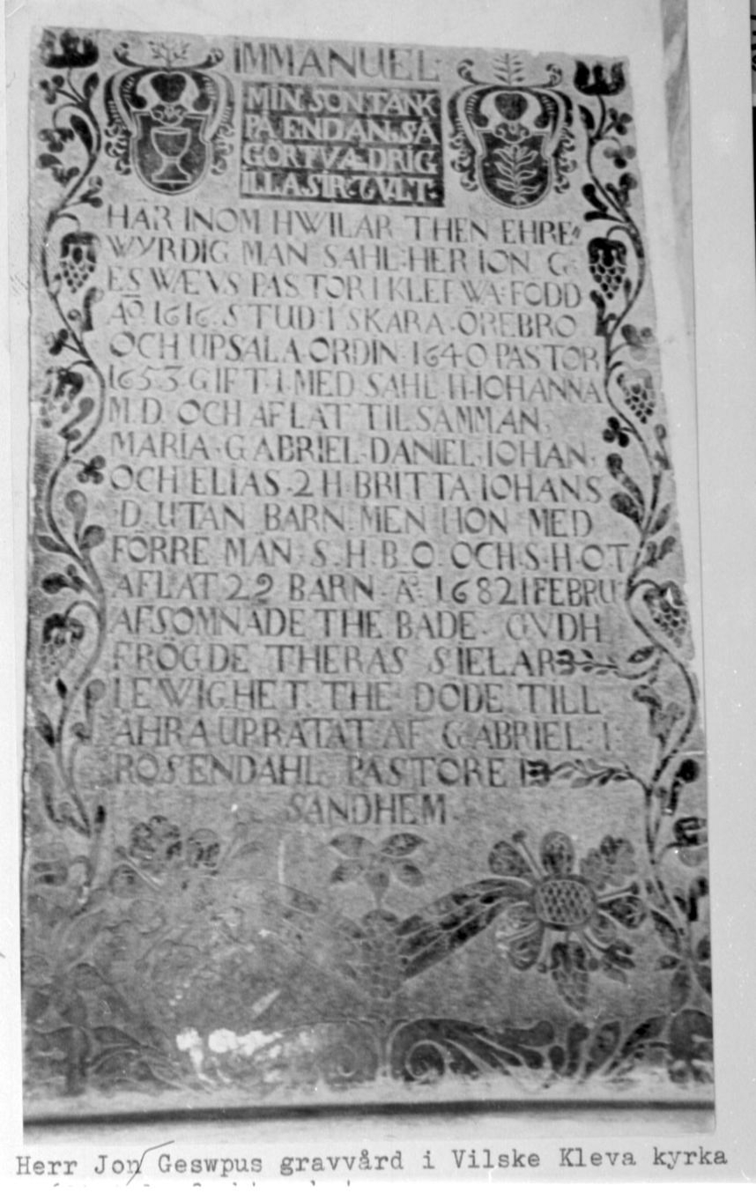 IMMANUEL
MIN. SON. TÄNK
PÅ ENDAN. SÅ
GÖR TV ADRIG
ILLA. SIR. GVLT.
HÄR INOM HWILAR THEN EHRE
WYRDIG MAN SAHL. HER ION G
ESWÆVS PASTOR I KLEFWA. FÖDD
AO 1616. STUD. I SKARA. ÖREBRO
OCH UPSALA. ORDIN. 1640 PASTOR
1653 GIFT. I. MED SAHL. H. IOHANNA
M. D. OCH AFLAT TILSAMMAN.
MARIA. GABRIEL. DANIEL. IOHAN.
OCH ELIAS. 2 H. BRITTA IOHANS
D. UTAN BARN. MEN HON MED
FÖRRE MAN. S. H. B. O. OCH. S. H. O T
AFLAT 22 BARN. A. 1682 1 FEBRU
AFSOMNADE THE BÅDE. GVDH
FRÖGDE THERAS SIELAR
I EWIGHET. THE DÖDE TILL
ÄHRA UPRÄTAT AF GABRIEL. I.
ROSENDAHL PASTORE I
SANDHEM.
Herr Jon Geswpus gravvård i Vilske Kleva kyrka